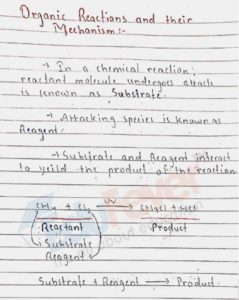 Organic Reactions and their
Mechanism:-
→ In a chemical reaction;
reactant molecule undergoes attack
is known as Substrate.
→ Attacking species is known as
Reagent.
→ Substrate and Reagent interact
to yeild the product of the reaction
CH₄ + Cl₂ —UV→ CH₃Cl + HCl
Reactant Product
Substrate
Reagent
Substrate + Reagent → Product